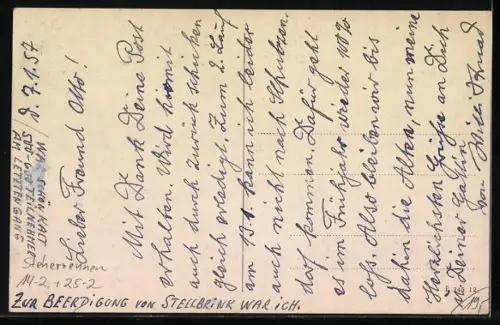 d. 7.1.57
Lieber Freund Otto!
Mit Dank Deine Post
erhalten. Wird hiermit
auch durch zurück schicken
gleich erledigt. Zum 2. Lauf
am 13.1. kann ich leider
auch nicht nach
kommen. Dafür geht
es im Frühjahr wieder 100%
los. Also bleiben wir bis
dahin die Alten, nun meine
Herzlichsten Grüße an Dich
u. Deiner Gattin
von Willi
WAR
AM LETZTEN GANG
Steherrennen
14-2 + 25-2
ZUR BEERDIGUNG VON STELLBRINK WAR ICH.